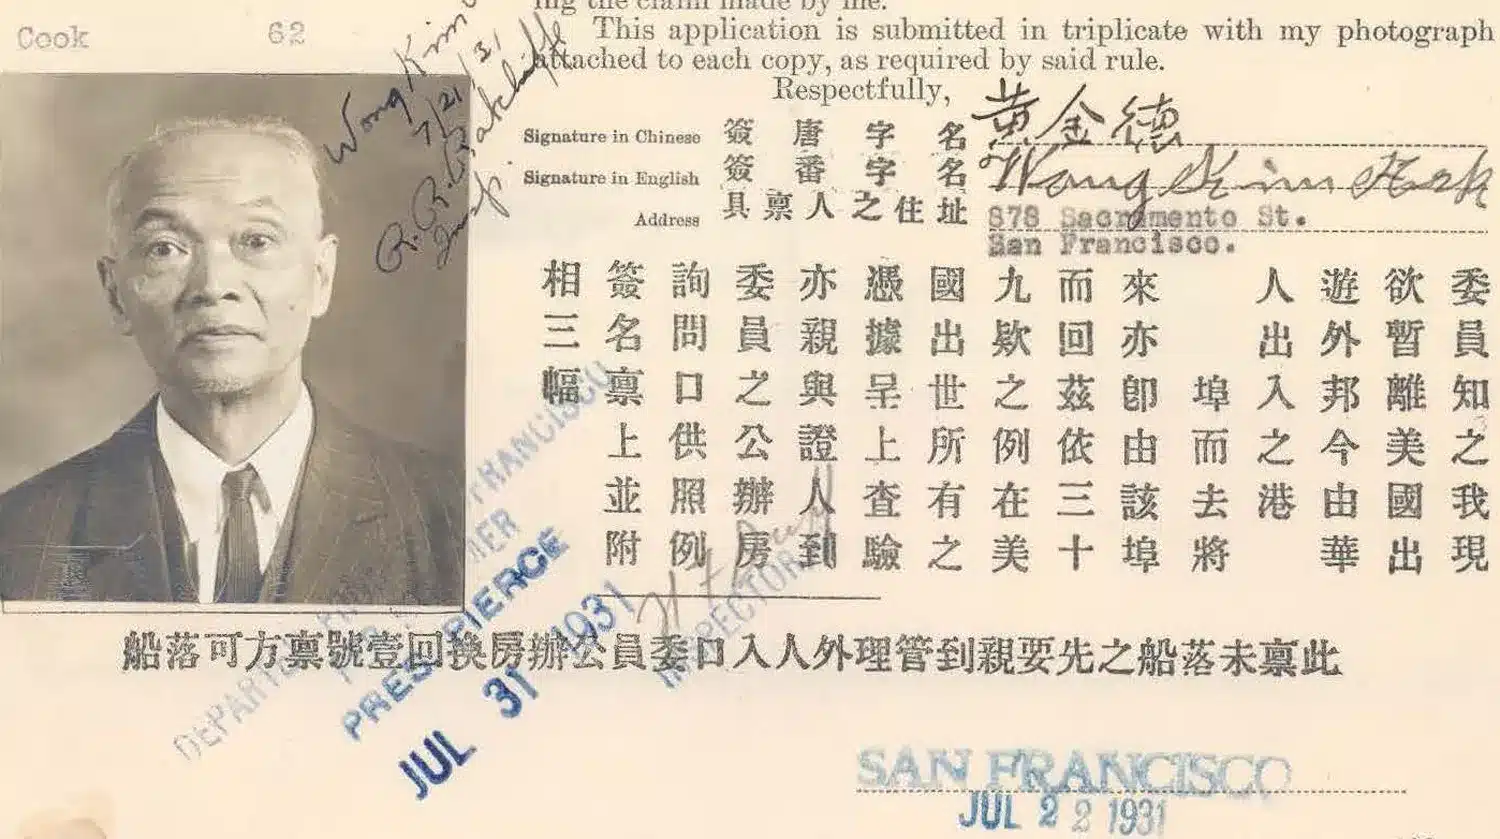 ing the claim made by me.
This application is submitted in triplicate with my photograph
attached to each copy, as required by said rule.
Respectfully,
Cook 62
Wong Kim
7/21/31
Insp.
Signature in Chinese 簽唐字名 黃金德
Signature in English 簽番字名 Wong Kim
Address 具禀人之住址 878 Sacramento St.
San Francisco.
委員知之我現
欲暫離美國出
遊外邦今由華
人出入之港
埠而去將
來亦卽由該埠
而回茲依三十
九欵之例在美
國出世所有之
憑據呈上查驗
亦親與證人到
委員之公辦房
詢問口供照例
簽名禀上並附
相三幅
此禀未落船之先要親到管理外人入口委員公辦房換回壹號禀方可落船
DEPARTED FROM SAN FRANCISCO
PER STEAMER
PRES. PIERCE
JUL 31 1931
INSPECTOR
SAN FRANCISCO
JUL 22 1931